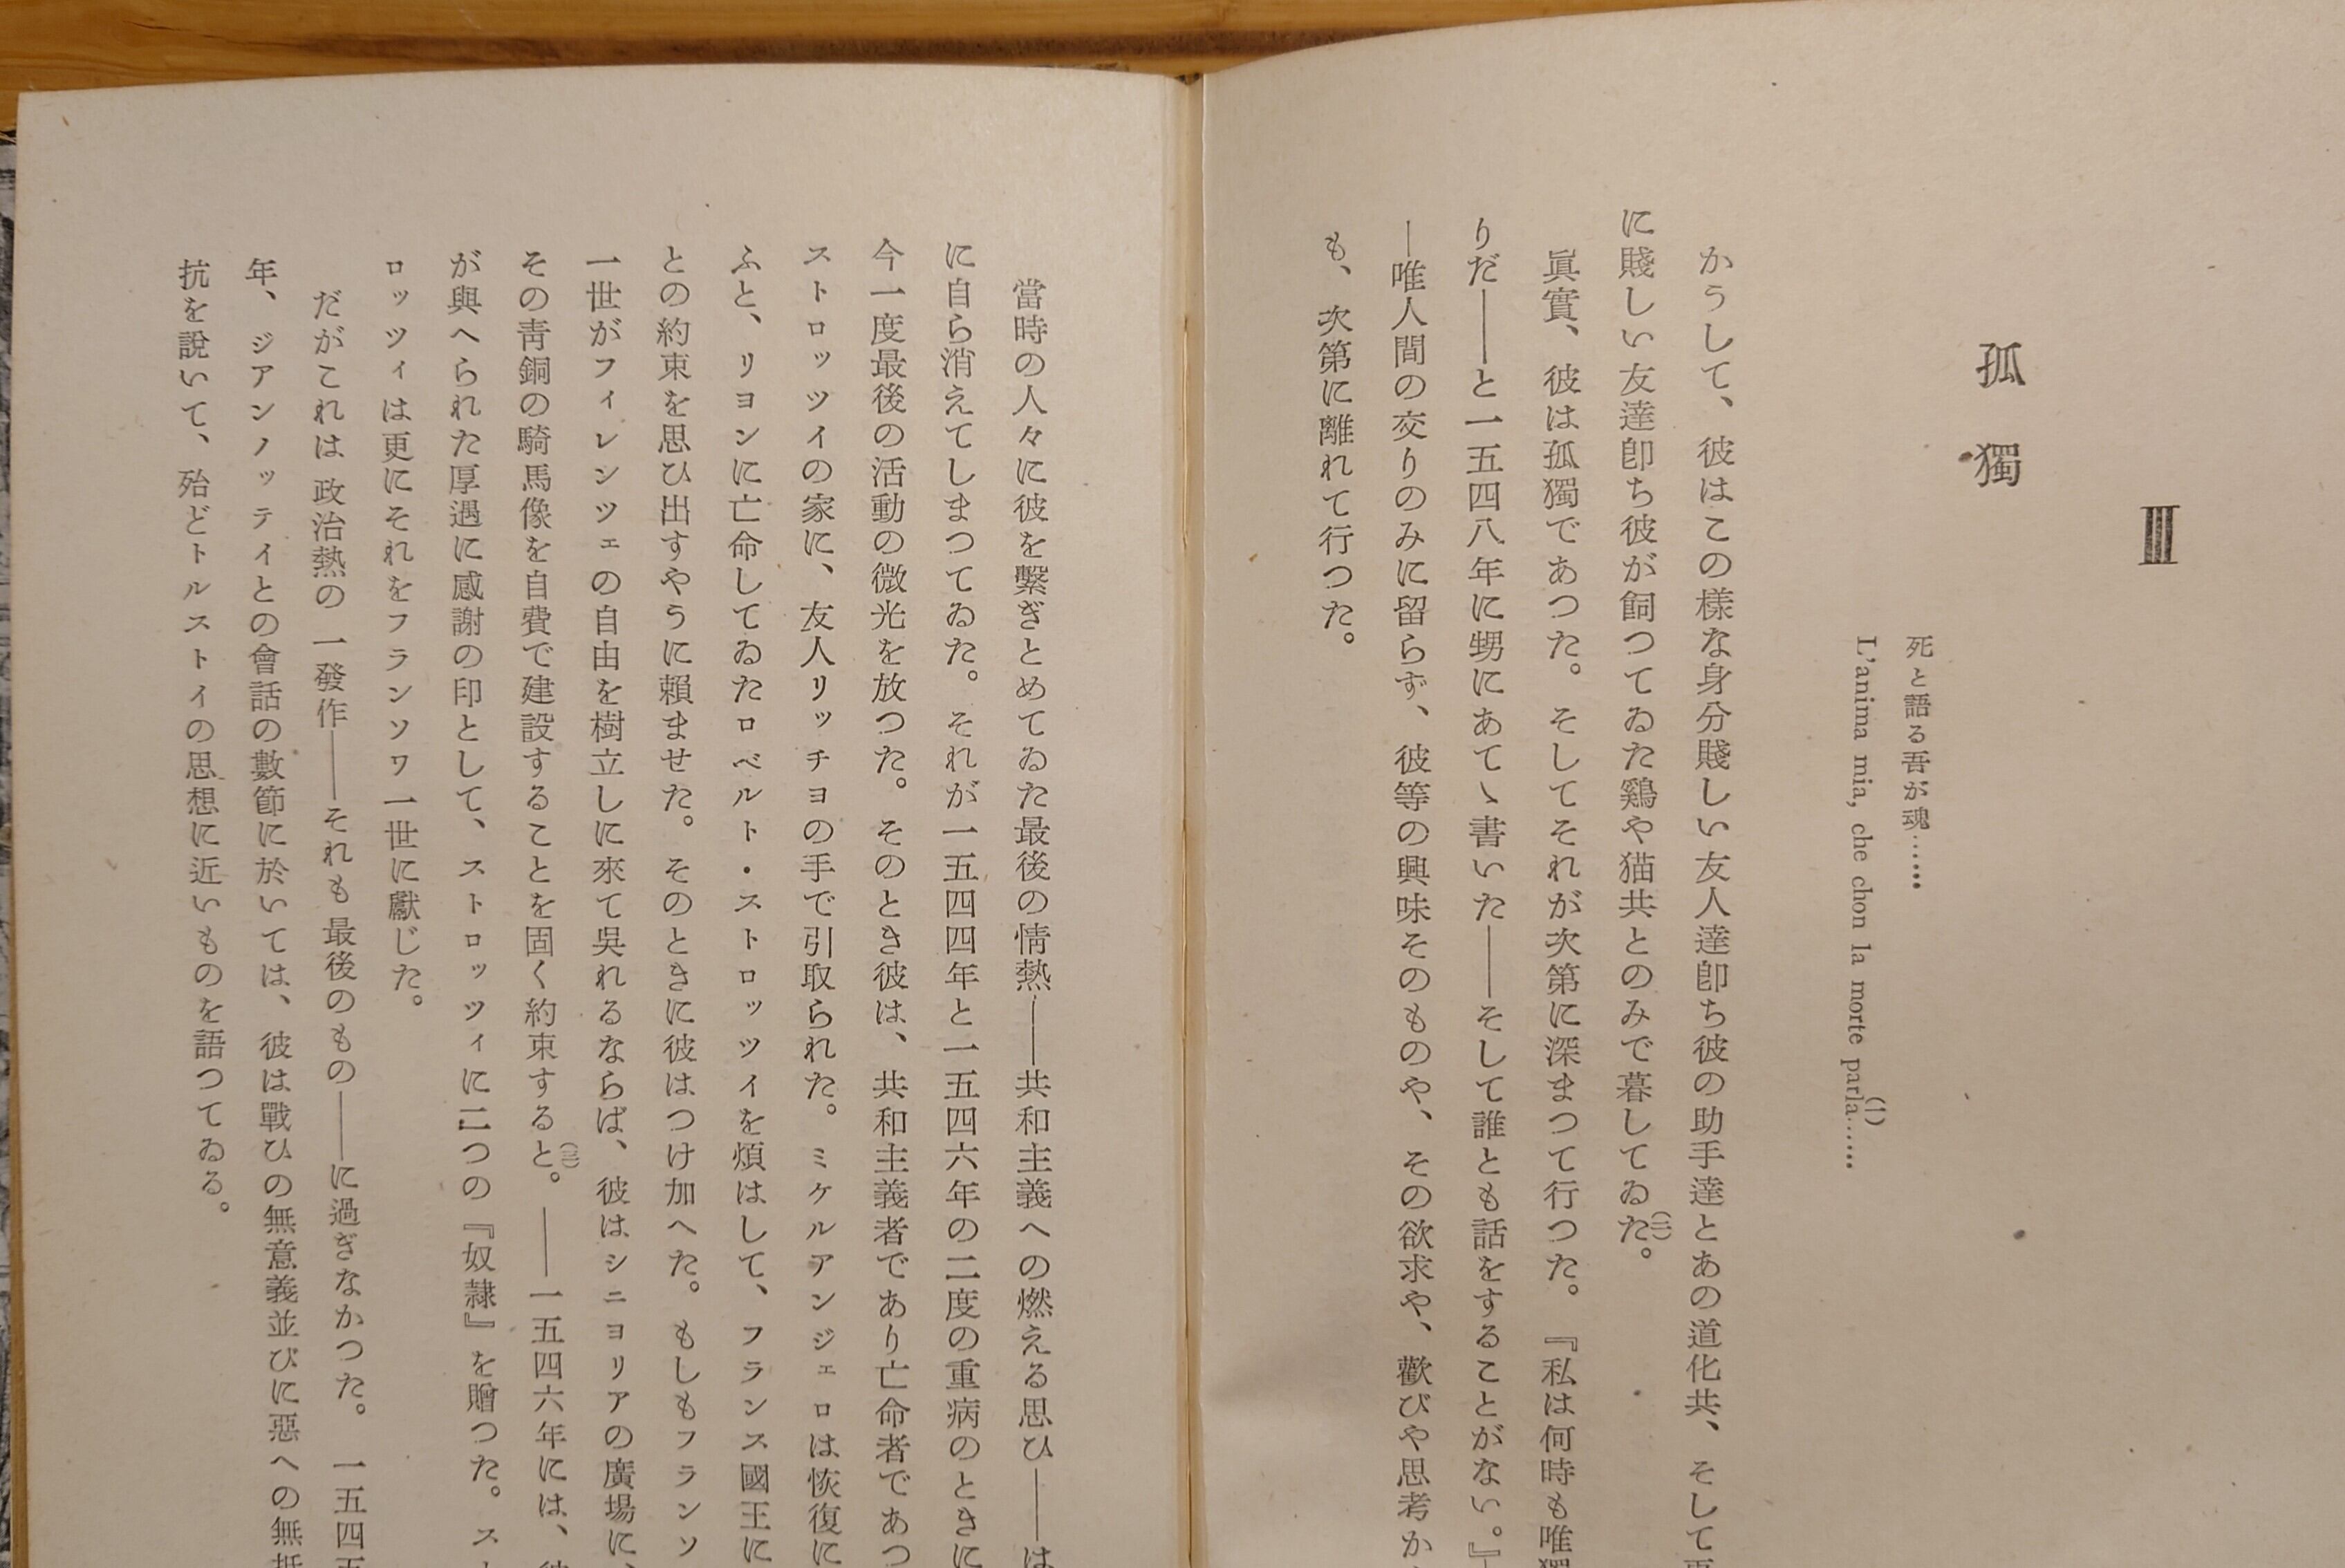 III
孤獨
死と語る吾が魂……
L'anima mia, che chon la morte parla……(一)
かうして、彼はこの様な身分賤しい友人達卽ち彼の助手達とあの道化共、そして
に賤しい友達卽ち彼が飼つてゐた鷄や猫共とのみで暮してゐた。(二)
眞實、彼は孤獨であつた。そしてそれが次第に深まつて行つた。『私は何時も唯獨
りだ――と一五四八年に甥にあてゝ書いた――そして誰とも話をすることがない。』―
―唯人間の交りのみに留らず、彼等の興味そのものや、その欲求や、歡びや思考か
も、次第に離れて行つた。
當時の人々に彼を繫ぎとめてゐた最後の情熱――共和主義への燃える思ひ――は
に自ら消えてしまつてゐた。それが一五四四年と一五四六年の二度の重病のときに
今一度最後の活動の微光を放つた。そのとき彼は、共和主義者であり亡命者であつ
ストロッツイの家に、友人リッチヨの手で引取られた。ミケルアンジェロは恢復に
ふと、リヨンに亡命してゐたロベルト・ストロッツイを煩はして、フランス國王に
との約束を思ひ出すやうに賴ませた。そのときに彼はつけ加へた。もしもフランソ
一世がフィレンツェの自由を樹立しに來て吳れるならば、彼はシニヨリアの廣場に、
その靑銅の騎馬像を自費で建設することを固く約束すると。(三)――一五四六年には、彼
が與へられた厚遇に感謝の印として、ストロッツィに二つの『奴隷』を贈つた。スト
ロッツィは更にそれをフランソワ一世に獻じた。
だがこれは政治熱の一發作――それも最後のもの――に過ぎなかつた。一五四五
年、ジアンノッティとの會話の數節に於いては、彼は戰ひの無意義並びに惡への無抵
抗を說いて、殆どトルストイの思想に近いものを語つてゐる。